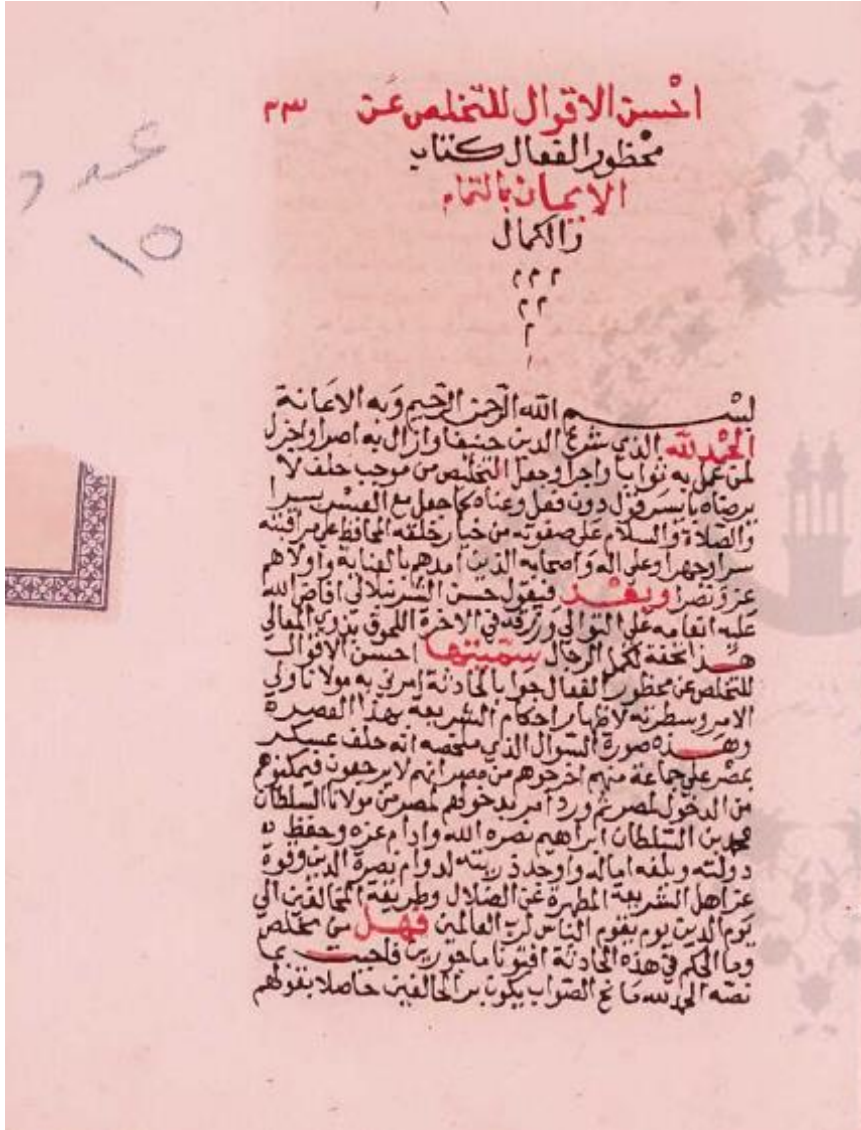 احسن الاقوال للتخلص عن ٢٣
محظور الفعال كتاب
الايمان بالتمام
والكمال
م م م
م م
م
عدد
١٥
بسم الله الرحمن الرحيم وبه الاعانة
الحمد لله الذي شرع الدين حنيفا وازال به اصرا واجزل
لمن عمل به ثوابا واجرا وجعل التخلص من موجب حلف لا
يرضاه بايسر قول دون فعل وعناه كما جعل مع العسر يسرا
والصلاة والسلام على صفوته من خيار خلقه المحافظ على مراقبته
سرا وجهرا وعلى اله واصحابه الذين امدهم بالعناية واولاهم
عزو نصرا وبعد فيقول حسن الشرنبلالي افاض الله
عليه انعامه على التوالي ورزقه في الاخرة اللحوق بذوي المعالي
هذا تحفة لكمل الرجال سميتها احسن الاقوال
للتخلص عن محظور الفعال جوابا لحادثة امرني به مولانا ولي
الامر وسطرته لاظهار احكام الشريعة بهذا العصره
وهذه صورة السوال الذي ملخصه انه حلف عسكر
بمصر على جماعة منهم اخرجوهم من مصر انهم لا يرجعون فيمكنوهم
من الدخول لمصر ثم ورد امر بدخولهم لمصر من مولانا السلطان
محمد بن السلطان ابراهيم نصره الله وادام عزه وحفظ به
دولته وبلغه اماله واوجد ذريته لدوام نصرة الدين وقوة
عز اهل الشريعة المطهرة عن الضلال وطريقة المخالفين الي
يوم الدين يوم يقوم الناس لرب العالمين فهل من مخلص
وما الحكم في هذه الحادثة افتونا ماجورين فاجبت بما
نصه الحمد لله مانح الصواب يكون بر الحالفين حاصلا بقولهم